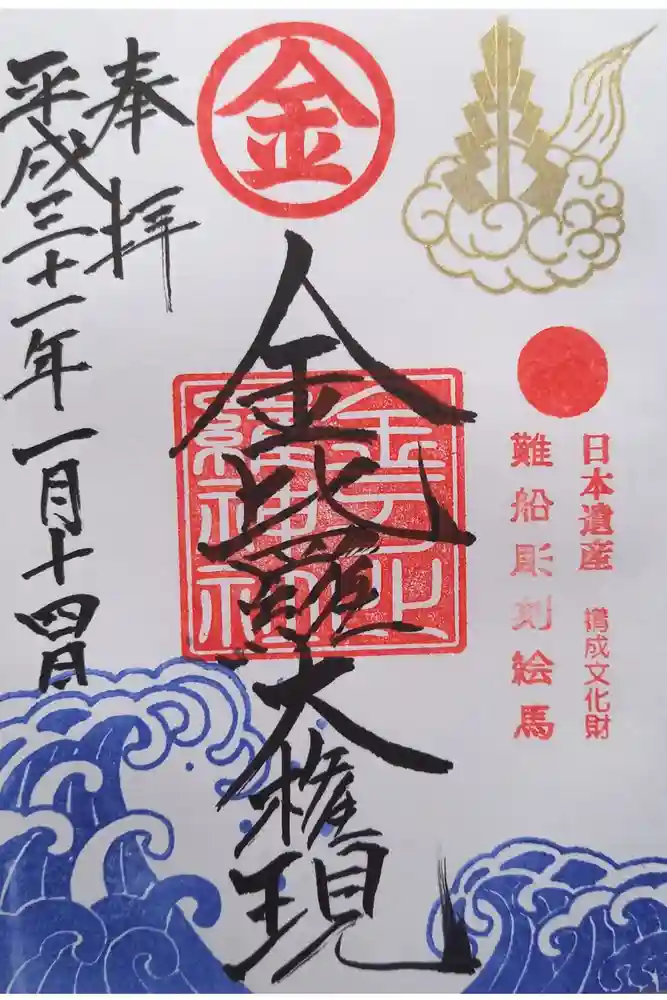 日本遺産 構成文化財
難船彫刻絵馬
金
金比羅大権現
奉拝
平成三十一年一月十四日